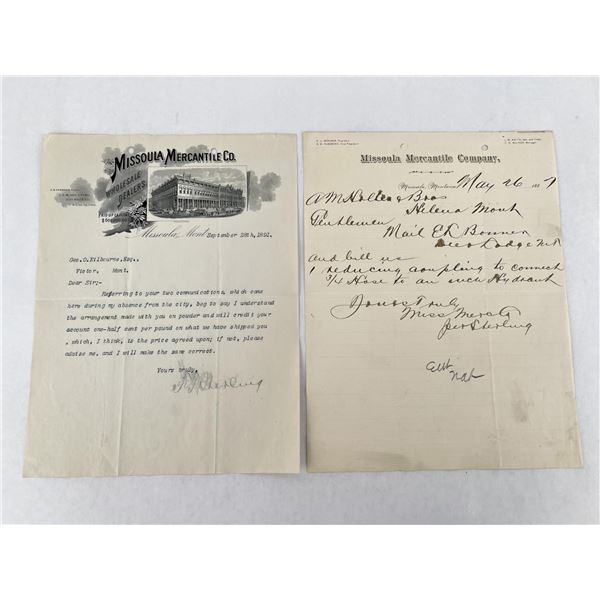 The
MISSOULA MERCANTILE CO.
WHOLESALE
DEALERS.
PAID UP CAPITAL
Missoula, Mont. September 28th, 1891.
Geo. O. Kilbourne, Esq.,
Victor, Mont.
Dear Sir;-
Referring to your two communications, which came
here during my absence from the city, beg to say I understand
the arrangement made with you on powder and will credit your
account one-half cent per pound on what we have shipped you
, which, I think, is the price agreed upon; if not, please
advise me, and I will make the same correct.
Yours truly,
Sterling
Missoula Mercantile Company,
Missoula, Montana May 26 188
A M Holter & Bros
Helena Mont
Gentlemen
Mail E L Bonner
Deer Lodge
and bill us
1 reducing coupling to connect
3/4 Hose to an inch Hydrant
Yours Truly
Miss Merc Co
per Sterling